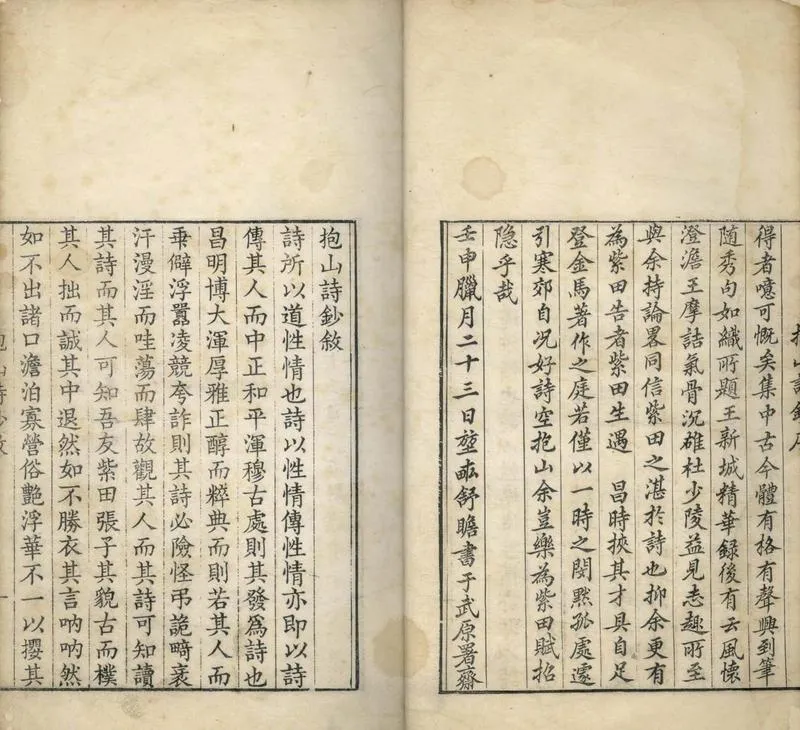 得者噫可慨矣集中古今體有格有聲興到筆
随秀句如織所題王新城精華録後有云風懷
澄澹王摩詰氣骨沉雄杜少陵益見志趣所至
與余持論畧同信紫田之湛於詩也抑余更有
為紫田告者紫田生遇 昌時挾其才具自足
登金馬著作之庭若僅以一時之閔黙孤處遽
引寒郊自况好詩空抱山余豈樂為紫田賦招
隐乎哉
壬申臘月二十三日堃畝舒瞻書于武原署齋
抱山詩鈔敘
詩所以道性情也詩以性情傳性情亦即以詩
傳其人而中正和平渾穆古處則其發為詩也
昌明博大渾厚雅正醇而粹典而則若其人而
乖僻浮囂凌競夸詐則其詩必險怪弔詭畸袤
汗漫淫而哇蕩而肆故觀其人而其詩可知讀
其詩而其人可知吾友紫田張子其貌古而樸
其人拙而誠其中退然如不勝衣其言呐呐然
如不出諸口澹泊寡營俗艷浮華不一以攖其